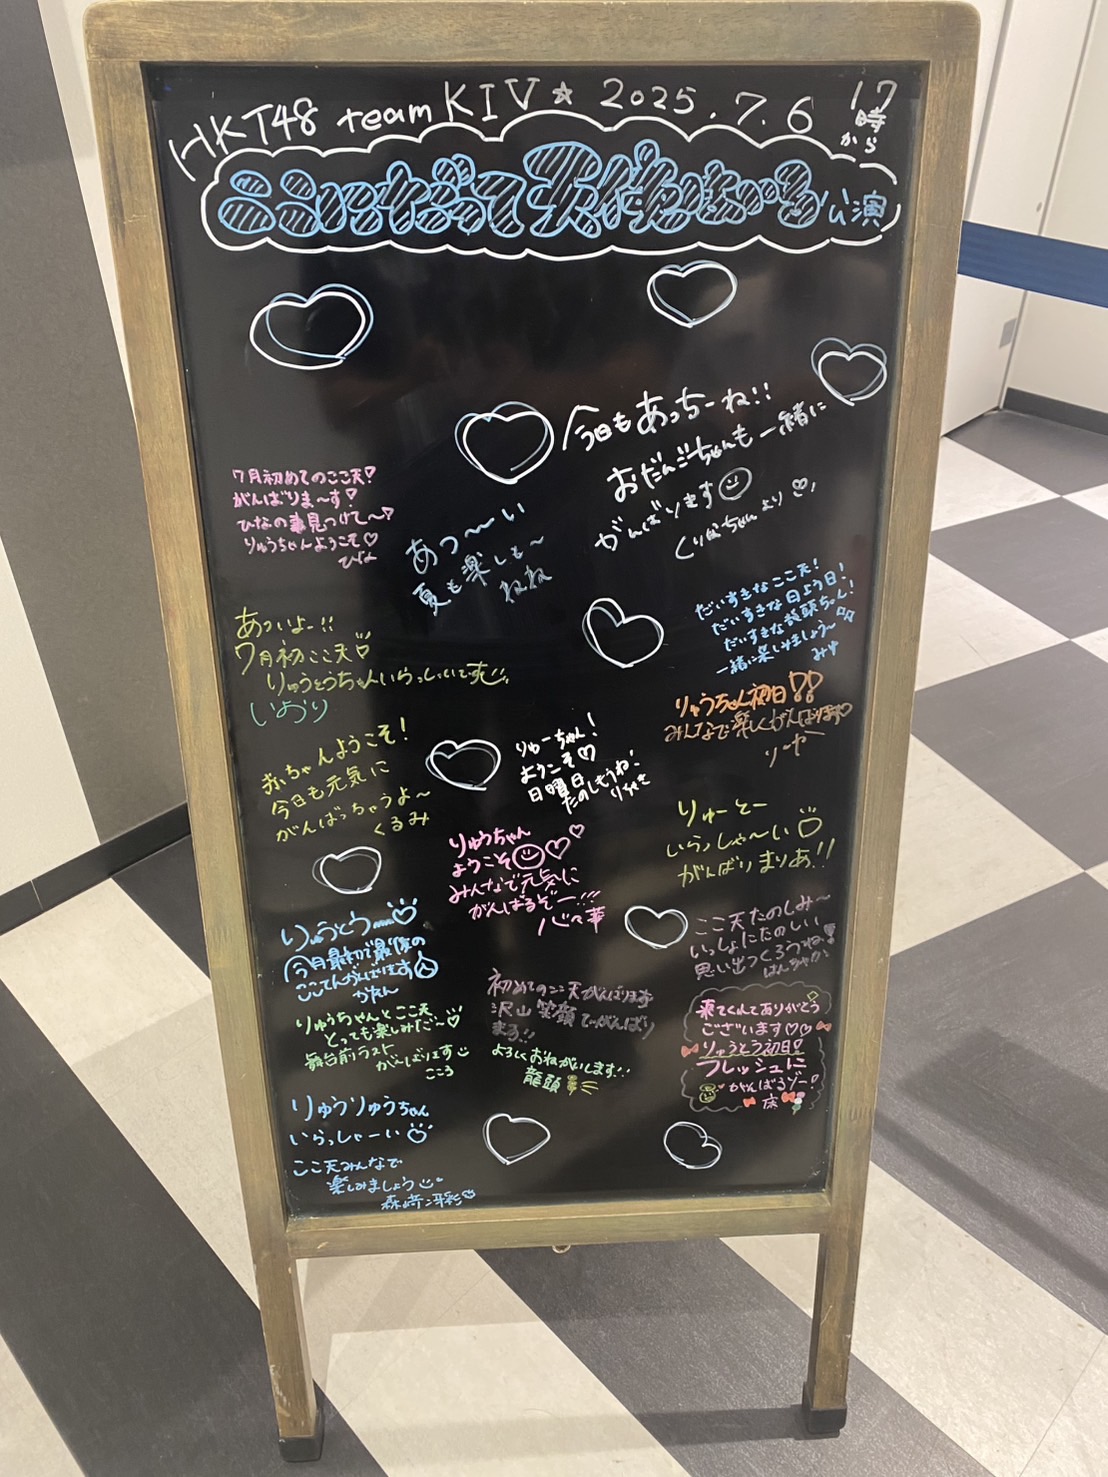 HKT48 teamKIV☆ 2025.7.6 17時から
ここにだって天使はいる公演
今日もあっちーね!!
おだんごちゃんも一緒に
がんばります
くりぽちゃんより♡
7月初めてのここ天♡
がんばりま〜す!
ひなの事見つけて〜♡
りゅうちゃんようこそ♡
ひな
あつ〜〜い
夏も楽しも〜
ねね
だいすきなここ天!
だいすきな日よう日!
だいすきな龍頭ちゃん!
一緒に楽しみましょう〜
みゆ
あついよー!!
7月初ここ天♡
りゅうとうちゃんいらっしゃいです
いおり
りゅうちゃん初日!!
みんなで楽しくがんばります♡
赤ちゃんようこそ!
今日も元気に
がんばっちゃうよ〜
くるみ
りゅーちゃん!
ようこそ♡
日曜日
たのしもうね!
りゅーとー
いらっしゃ〜い♡
がんばりまりあ!!
りゅうちゃん
ようこそ♡♡
みんなで元気に
がんばるぞー!!!
心々華
りゅうとう〜〜♡
今月最初で最後の
ここてんがんばります
ここ天たのしみ〜
いっしょにたのしい
思い出つくろうね!
りゅうちゃんとここ天
とっても楽しみだ〜♡
舞台前ラスト
がーばります
こころ
初めてのここ天がんばります
沢山笑顔でがんばり
まる!!
よろしくおねがいします!!
龍頭
来てくれてありがとう
ございます♡♡
りゅうとう初日!
フレッシュに
がんばるゾー!
りゅうりゅうちゃん
いらっしゃーい♡
ここ天みんなで
楽しみましょう
森﨑冴彩